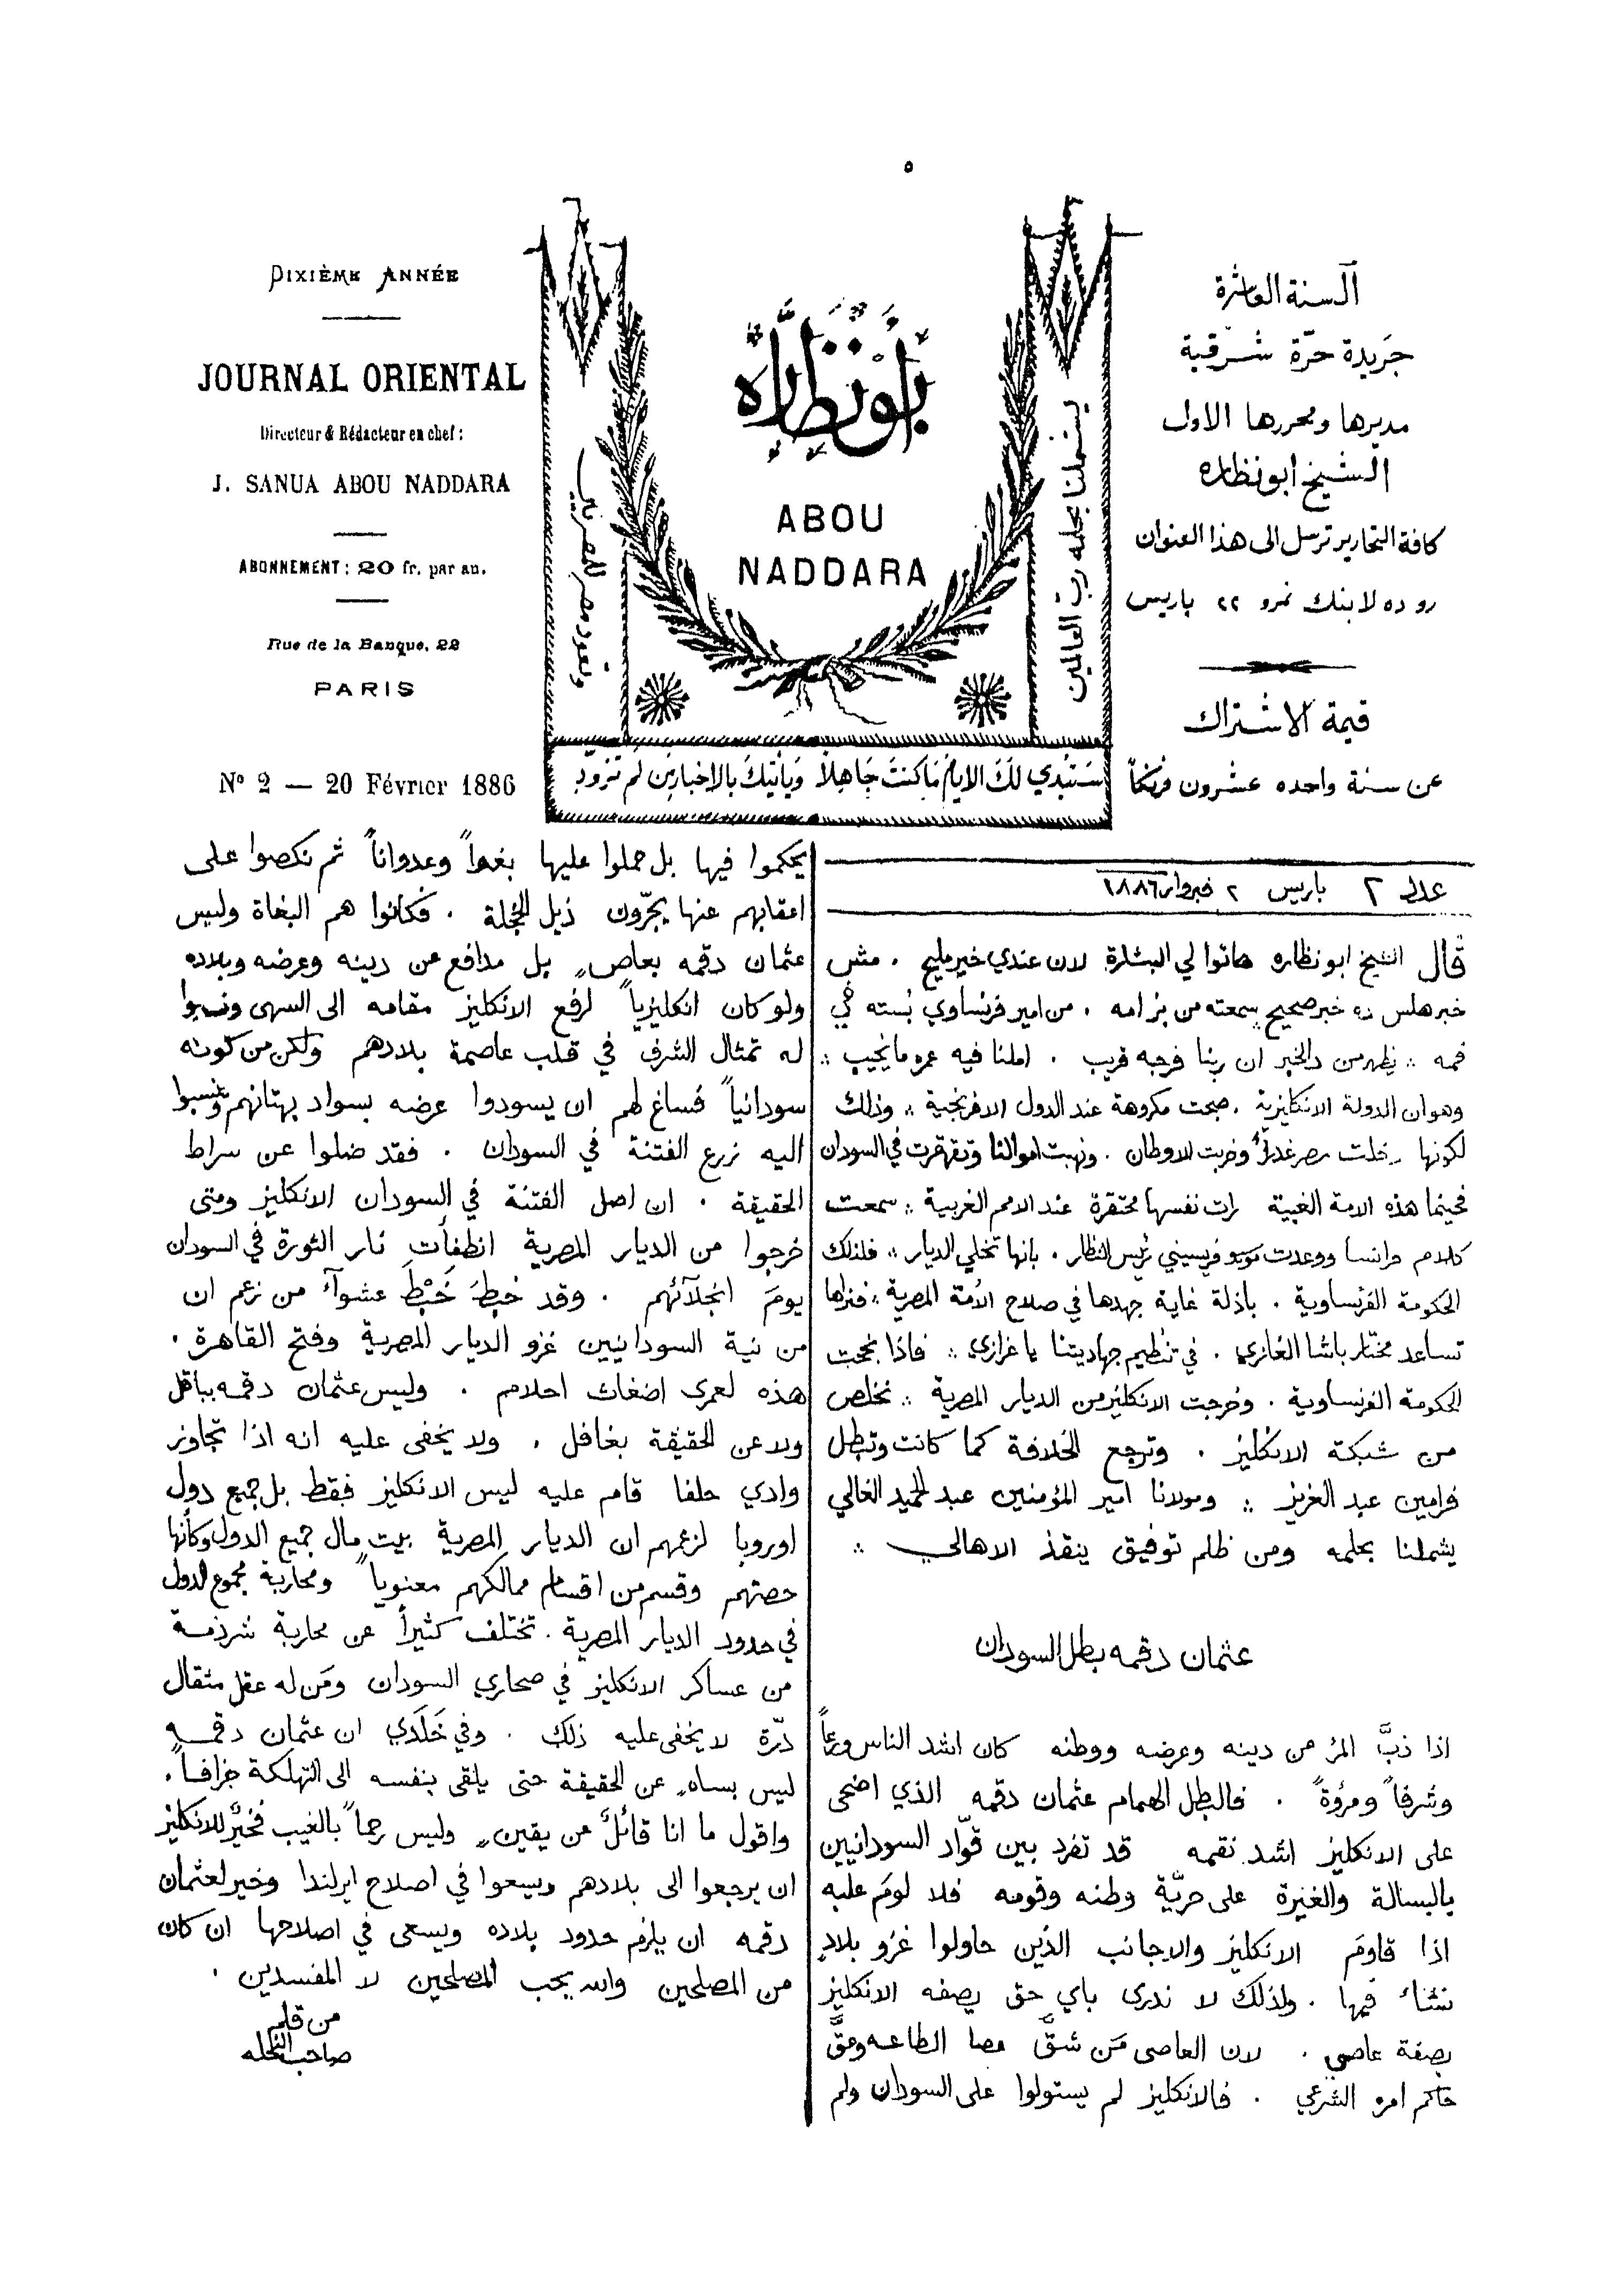 ٥
DIXIÈME ANNÉE
JOURNAL ORIENTAL
Directeur & Rédacteur en chef:
J. SANUA ABOU NADDARA
ABONNEMENT: 20 fr. par an.
Rue de la Banque, 22
PARIS
Nº 2 — 20 Février 1886
أبو نظاره
ABOU
NADDARA
يشملنا بحلمه رب العالمين
وتعود مصر للمصريين
سَتبْدي لكَ الايامُ مَا كنتَ جَاهِلاً وَيأتيكَ بالاخبار مَن لم تزوّدِ
ألسنة العاشرة
جَريدة حرّة شرقية
مديرها ومحررها الاول
الشيخ ابو نظاره
كافة التحارير ترسل الى هذا العنوان
رو ده لا بنك نمرو ٢٢ باريس
قيمة الاشتراك
عن سنة واحده عشرون فرنكاً
عدد ٢ باريس ٢ فبروار ١٨٨٦
قال الشيخ ابو نظاره هاتوا لي البشارة لان عندي خبر مليح . مش
خبر هلس ده خبر صحيح سمعته من بزامه . من امير فرنساوي بُسته في
فمه ∴ يظهر من دالخبر ان ربنا فرجه قريب . املنا فيه عمره ما يخيب ∴
وهو ان الدولة الانكليزية اصبحت مكروهة عند الدول الافرنجية ∴ وذلك
لكونها دخلت مصر غدراً وخربت الاوطان . ونهبت اموالنا وتقهقرت في السودان
فحينما هذه الامة الغبية رات نفسها محتقرة عند الامم الغربية ∴ سمعت
كلام فرانسا ووعدت موسيو فريسيني رئيس النظار . بانها تخلي الديار ∴ فلذلك
الحكومة الفرنساوية . باذلة غاية جهدها في صلاح الأمة المصرية ∴ فنراها
تساعد مختار باشا الغازي . في تنظيم جهاديتنا يا عزازي ∴ فاذا نجحت
الحكومة الفرنساوية . وخرجت الانكليز من الديار المصرية ∴ نخلص
من شبكة الانكليز . وترجع الخلافة كما كانت وتبطل
فرامين عبد العزيز ∴ ومولانا امير المؤمنين عبد الحميد الغالي
يشملنا بحلمه ومن ظلم توفيق ينقذ الاهالي ∴
عثمان دقمه بطل السودان
اذا ذبَّ المرُ عن دينه وعرضه ووطنه كان اشد الناس ورعاً
وشرفاً ومرؤةً . فالبطل الهمام عثمان دقمه الذي اضحى
على الانكليز اشد نقمه قد تفرد بين قوّاد السودانيين
بالبسالة والغيرة على حريّة وطنه وقومه فلا لومَ عليه
اذا قاومَ الانكليز والاجانب الذين حاولوا غزو بلادٍ
نشاءَ فيها . ولذلك لا ندرى باي حق يصفه الانكليز
بصفة عاصي . لان العاصى مَن شقَّ عصا الطاعه وعقَّ
حاكم امره الشرعي . فالانكليز لم يستولوا على السودان ولم
يحكموا فيها بل حملوا عليها بغياً وعدواناً ثم نكصوا على
اعقابهم عنها يجرّون ذيل الخجلة . فكانوا هم البغاة وليس
عثمان دقمه بعاصٍ بل مدافع عن دينه وعرضه وبلاده
ولو كان انكليزياً لرفع الانكليز مقامه الى السهى ونصبوا
له تمثال الشرف في قلب عاصمة بلادهم ولكن من كونه
سودانياً فساغ لهم ان يسودوا عرضه بسواد بهتانهم وينسبوا
اليه زرع الفتنة في السودان . فقد ضلوا عن سراط
الحقيقة . ان اصل الفتنة في السودان الانكليز ومتى
خرجوا من الديار المصرية انطفأت نار الثورة في السودان
يومَ انجلآئهم . وقد خبطَ خَبْطَ عشوآءَ من زعم ان
من نية السودانيين غزو الديار المصرية وفتح القاهرة .
هذه لعمرى اضغاث احلام . وليس عثمان دقمه بباقل
ولا عن الحقيقة بغافل . ولا يخفى عليه انه اذا تجاوز
وادي حلفا قام عليه ليس الانكليز فقط بل جميع دول
اوروبا لزعمهم ان الديار المصرية بيت مال جميع الدول وكأنها
حصتهم وقسم من اقسام ممالكهم معنوياً ومحاربة مجموع الدول
في حدود الديار المصرية . تختلف كثيراً عن محاربة شرذمة
من عساكر الانكليز في صحاري السودان ومَن له عقل مثقال
ذرّة لا يخفى عليه ذلك . وفي خَلَدي ان عثمان دقمه
ليس بساهٍ عن الحقيقة حتى يلقى بنفسه الى التهلكة جزافاً .
واقول ما انا قائلٌ عن يقينٍ وليس رجماً بالغيب فخيرٌ للانكليز
ان يرجعوا الى بلادهم ويسعوا في اصلاح ايرلندا وخير لعثمان
دقمه ان يلزم حدود بلاده ويسعى في اصلاحها ان كان
من المصلحين والله يحب المصلحين لا المفسدين .
من قلم
صاحب النحله